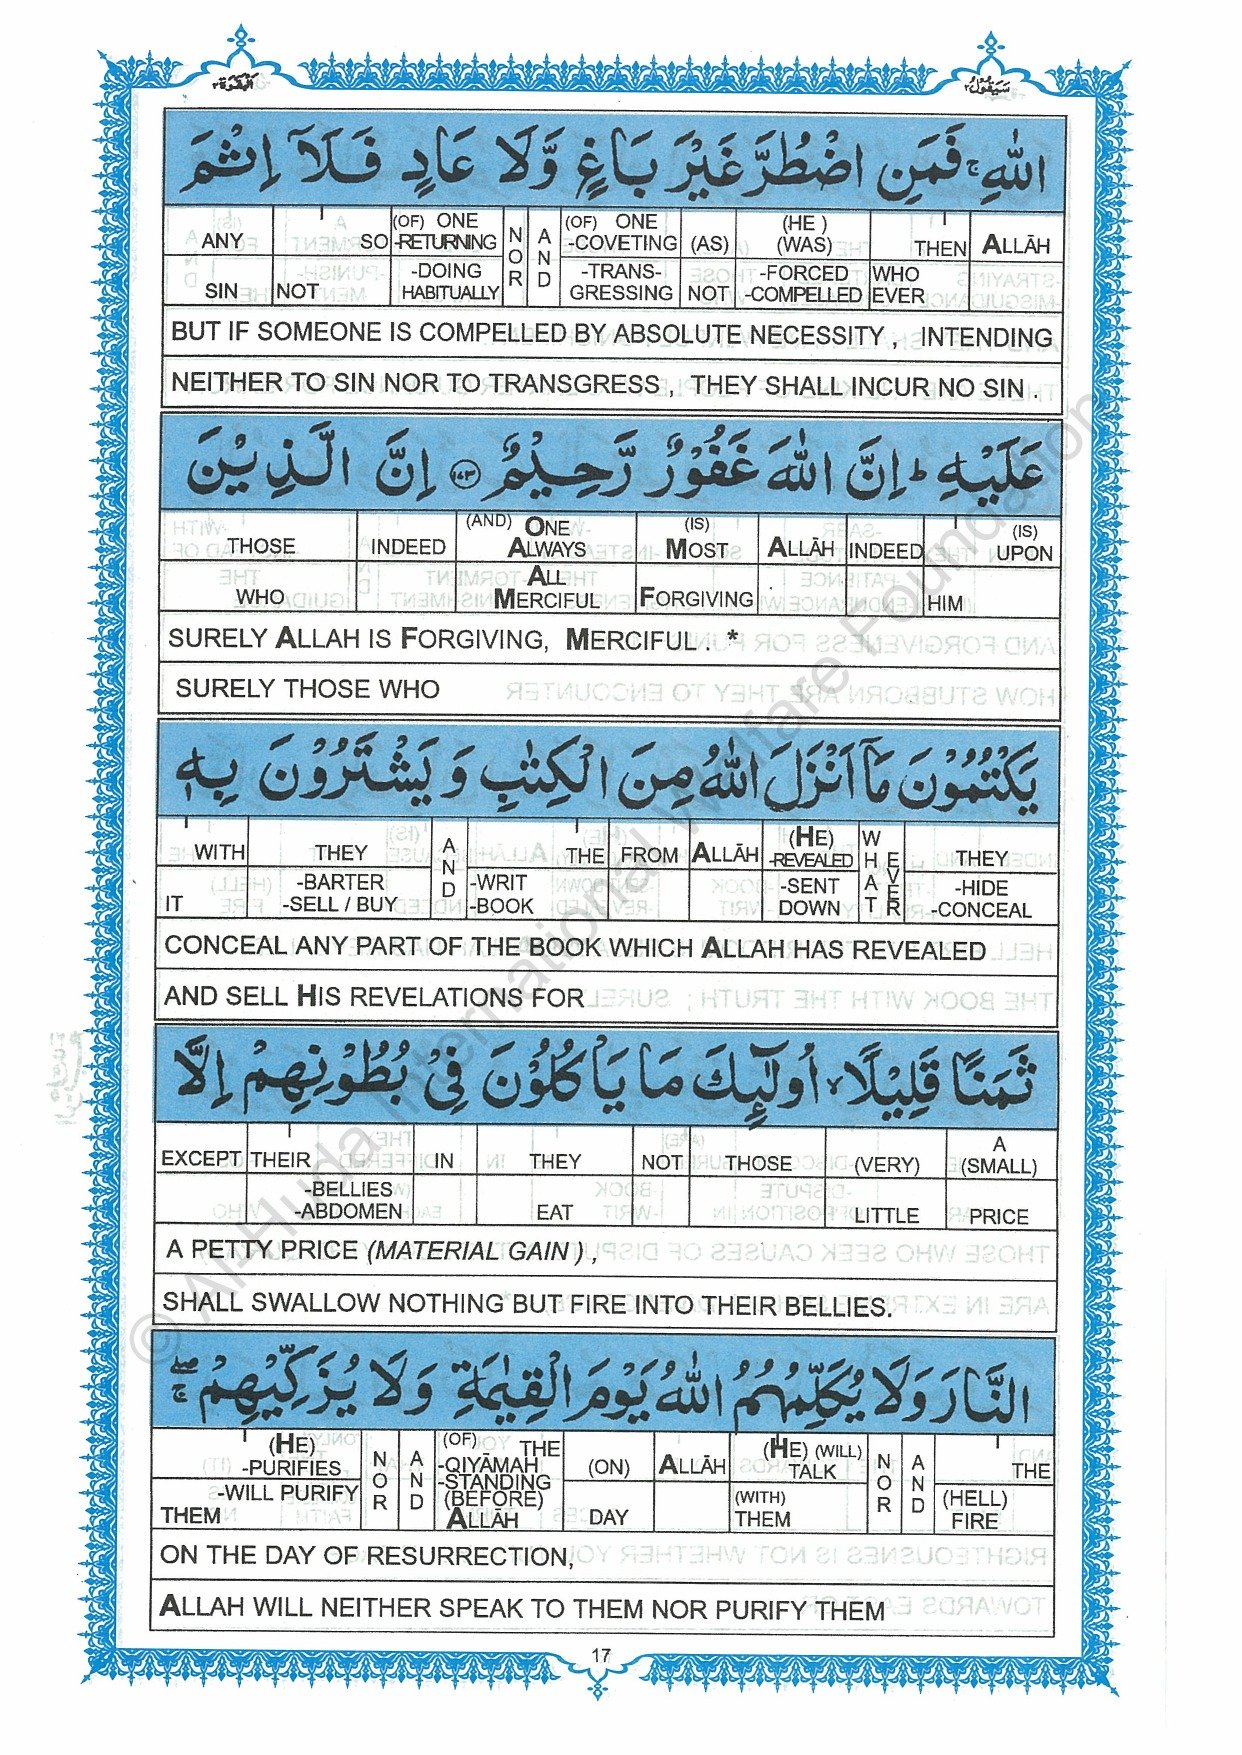 البقرة ٢
سيقول ٢
اللهِ ۚ فَمَنِ اضْطُرَّ غَيْرَ بَاغٍ وَّلَا عَادٍ فَلَآ اِثْمَ
ANY SO (OF) ONE -RETURNING NOR AND (OF) ONE -COVETING (AS) (HE) (WAS) THEN ALLĀH
SIN NOT -DOING HABITUALLY -TRANS-GRESSING NOT -FORCED -COMPELLED WHO EVER
BUT IF SOMEONE IS COMPELLED BY ABSOLUTE NECESSITY , INTENDING
NEITHER TO SIN NOR TO TRANSGRESS , THEY SHALL INCUR NO SIN .
عَلَيْهِ ؕ اِنَّ اللهَ غَفُوْرٌ رَّحِيْمٌ ۝۱۷۳ اِنَّ الَّذِيْنَ
THOSE INDEED (AND) ONE ALWAYS (IS) MOST ALLĀH INDEED (IS) UPON
WHO ALL MERCIFUL FORGIVING HIM
SURELY ALLAH IS FORGIVING, MERCIFUL . *
SURELY THOSE WHO
يَكْتُمُوْنَ مَآ اَنْزَلَ اللهُ مِنَ الْكِتٰبِ وَيَشْتَرُوْنَ بِهٖ
WITH THEY AND THE FROM ALLĀH (HE) -REVEALED WHAT EVER THEY
IT -BARTER -SELL / BUY -WRIT -BOOK -SENT DOWN -HIDE -CONCEAL
CONCEAL ANY PART OF THE BOOK WHICH ALLAH HAS REVEALED
AND SELL HIS REVELATIONS FOR
ثَمَنًا قَلِيْلًا ۙ اُولٰٓئِكَ مَا يَاْكُلُوْنَ فِيْ بُطُوْنِهِمْ اِلَّا
EXCEPT THEIR IN THEY NOT THOSE (VERY) A (SMALL)
-BELLIES -ABDOMEN EAT LITTLE PRICE
A PETTY PRICE (MATERIAL GAIN) ,
SHALL SWALLOW NOTHING BUT FIRE INTO THEIR BELLIES.
النَّارَ وَلَا يُكَلِّمُهُمُ اللهُ يَوْمَ الْقِيٰمَةِ وَلَا يُزَكِّيْهِمْ ۖۚ
(HE) -PURIFIES NOR AND (OF) THE -QIYĀMAH -STANDING (ON) ALLĀH (HE) (WILL) TALK NOR AND THE
-WILL PURIFY THEM (BEFORE) ALLĀH DAY (WITH) THEM (HELL) FIRE
ON THE DAY OF RESURRECTION,
ALLAH WILL NEITHER SPEAK TO THEM NOR PURIFY THEM
17
© Al-Huda International Welfare Foundation